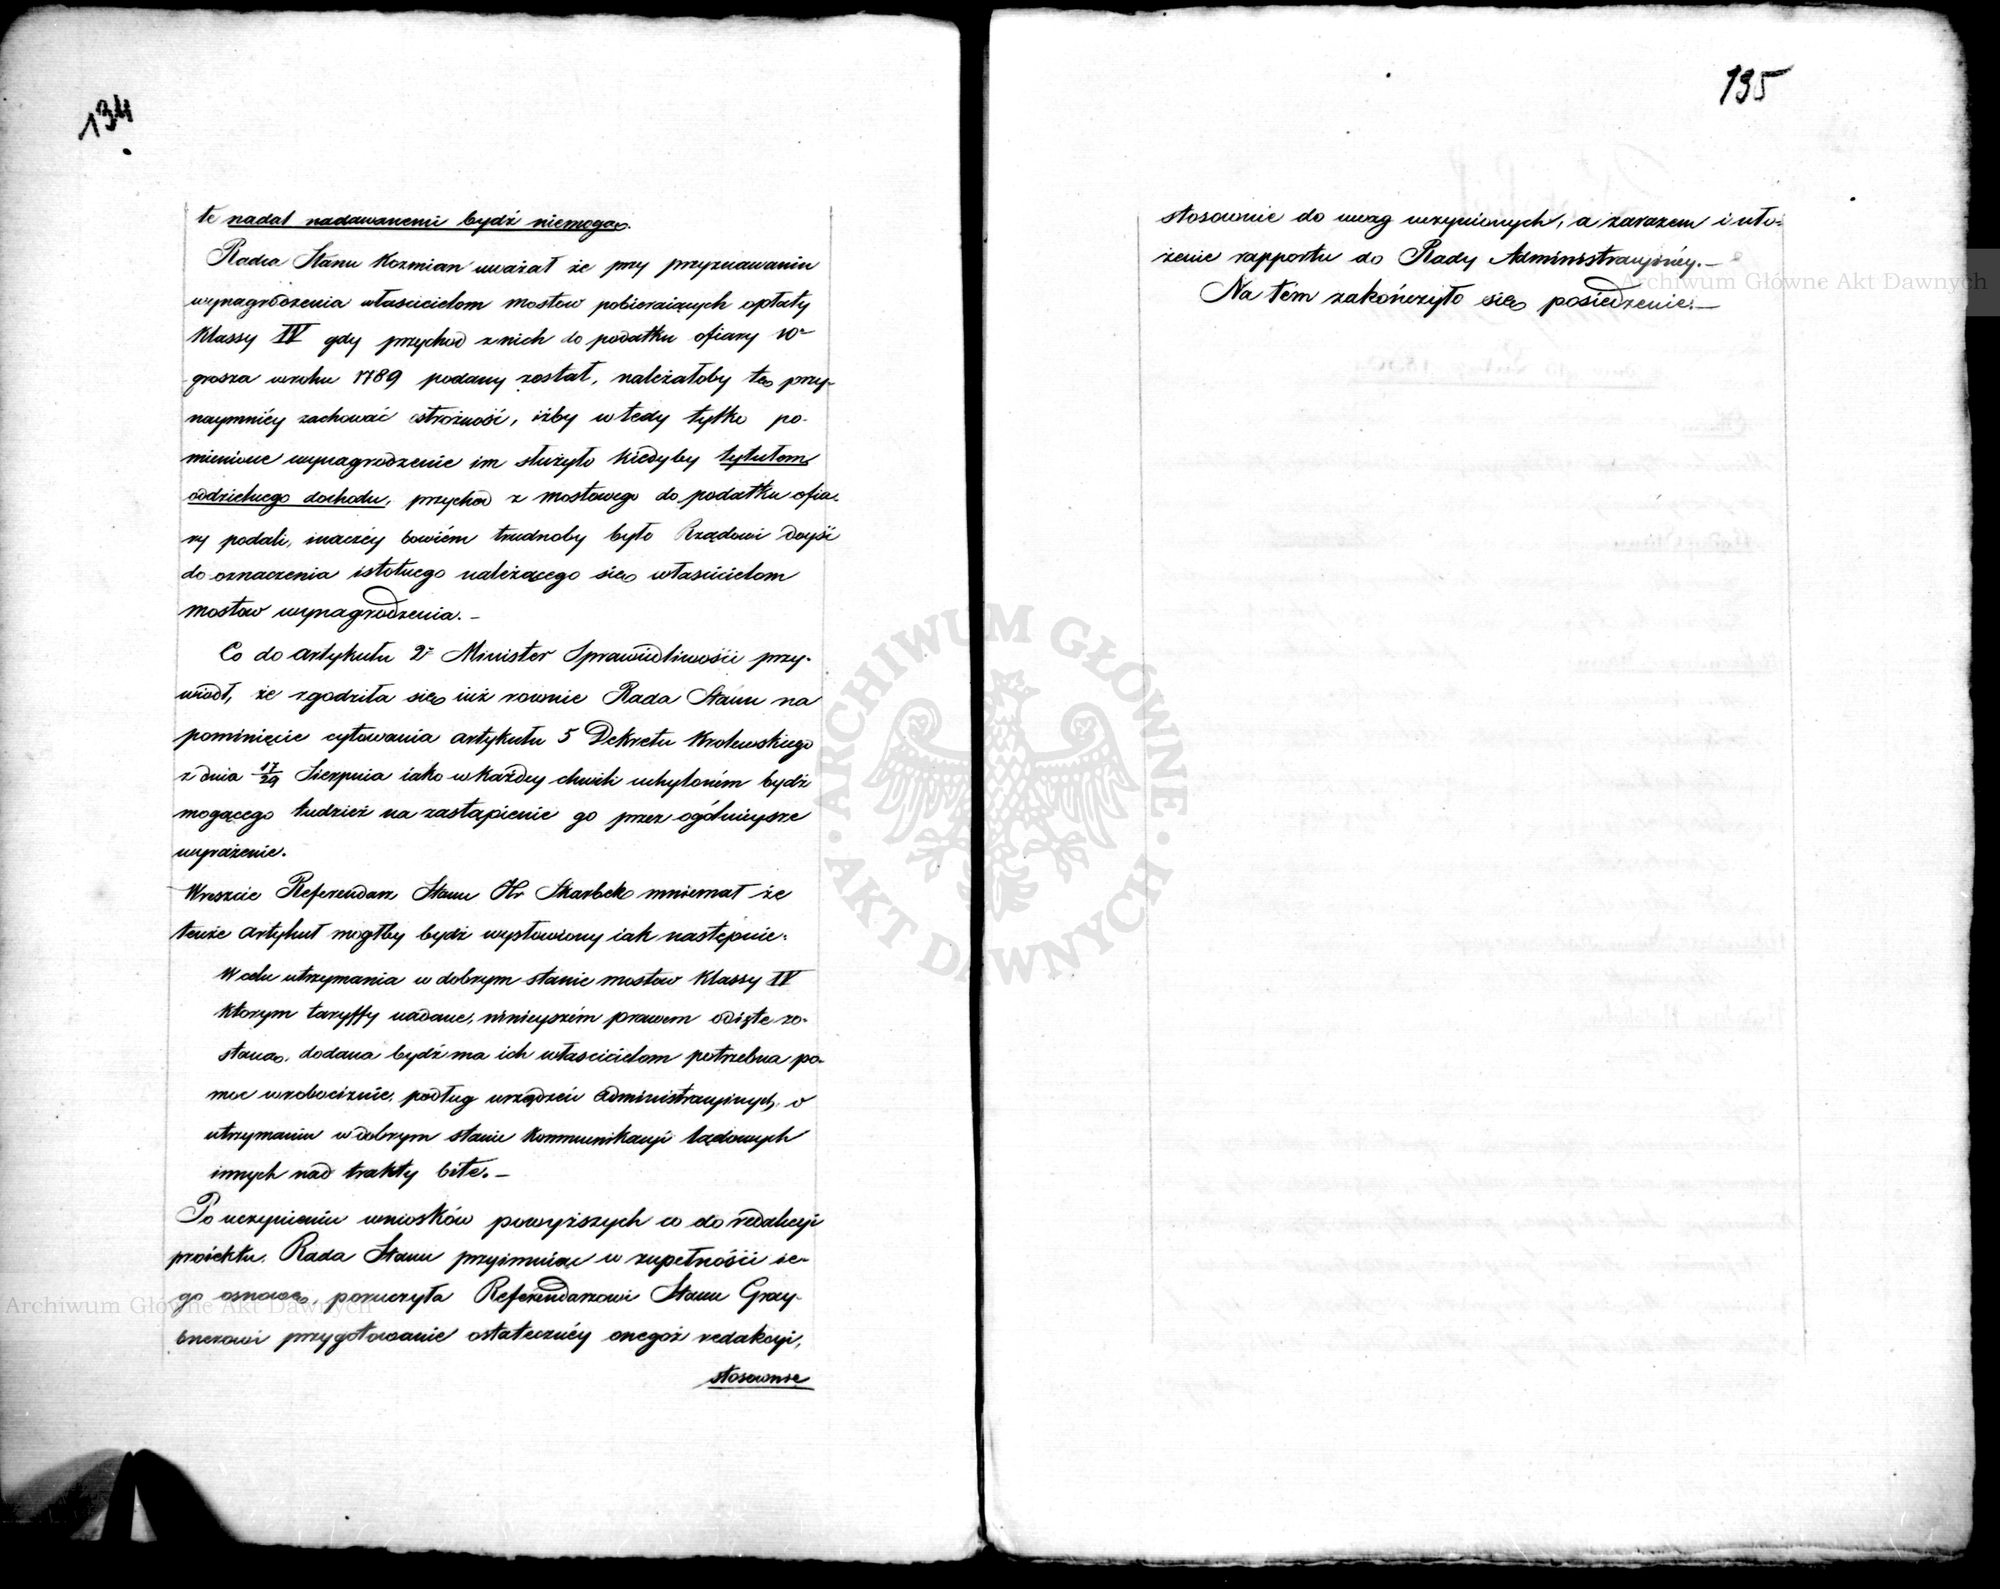 134
te nadal nadawanemi bydź niemogą.
Radca Stanu Kozmian uważał że przy przyznawaniu
wynagrodzenia właścicielom mostow pobieraiących opłaty
Klassy IV gdy przychod z nich do podatku ofiary 10º
grosza w roku 1789 podany został, należałoby tę przy-
naymniéy zachować ostrożność, iżby w tedy tylko po-
mienione wynagrodzenie im służyło kiedyby tytułem
oddzielnego dochodu, przychod z mostowego do podatku ofia-
ry podali, inaczéy bowiém trudnoby było Rządowi doyść
do oznaczenia istotnego należącego się właścicielom
mostow wynagrodzenia.-
Co do artykułu 2º Minister Sprawiedliwości przy-
wiodł, że zgodziła się iuż rownie Rada Stanu na
pominięcie cytowania artykułu 5 Dekretu Krolewskiego
z dnia 17/29 Sierpnia iako w każdey chwili uchyloném bydź
mogącego tudzież na zastąpienie go przez ogólnieysze
wyrażenie.
Wreszcie Referendarz Stanu Hr Skarbek mniemał że
tenże artykuł mogłby bydź wysłowiony iak następnie:
W celu utrzymania w dobrym stanie mostow Klassy IV
ktorym taryffy nadane, ninieyszém prawem odięte zo-
staną, dodana bydź ma ich właścicielom potrzebna po-
moc w robociznie, podług urządzeń administracyinych, o
utrzymaniu w dobrym stanie kommunikacyi lądowych
innych nad trakty bite.-
Po uczynieniu wniosków powyższych co do redakcyi
proiektu, Rada Stanu przyimuiąc w zupełności ie-
go osnowę, poruczyła Referendarzowi Stanu Gray-
bnerowi przygotowanie ostateczney onegoż redakcyi,
stosownie
135
stosownie do uwag uczynionych, a zarazem i uło-
żenie rapportu do Rady Administracyinéy.-
Na tém zakończyło się posiedzenie.-
Archiwum Główne Akt Dawnych
Archiwum Główne Akt Dawnych
ARCHIWUM GŁÓWNE · AKT DAWNYCH ·